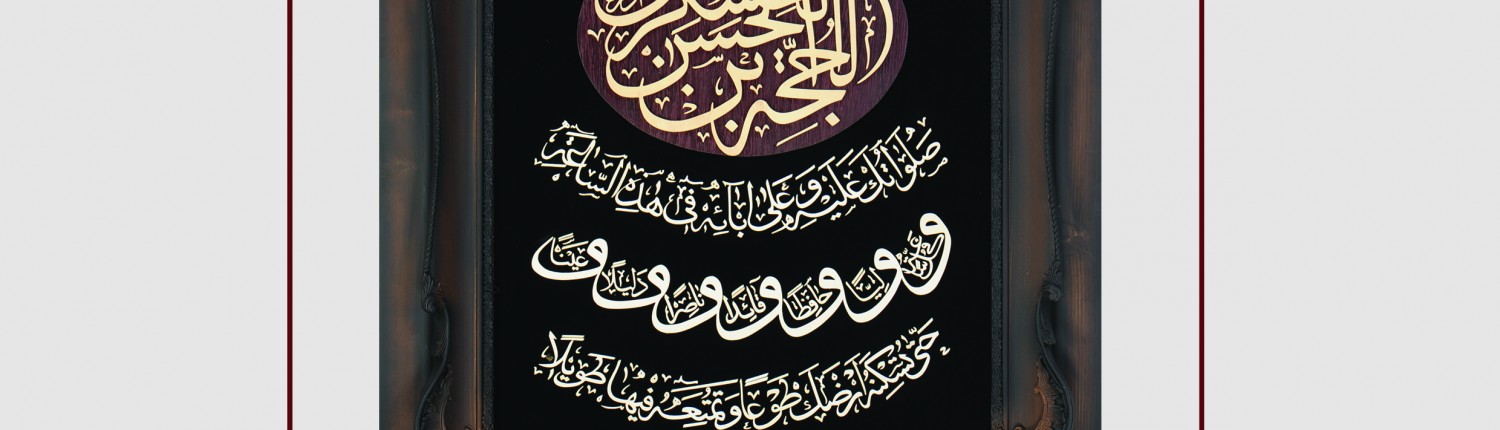 الحُجَّةِ بنِ الحَسَن
صَلَواتُكَ عَلَيْهِ وَعَلىٰ ابٰائِهِ في هٰذِهِ السّٰاعَةِ
وَفي كُلِّ سٰاعَةٍ وَلِيًّا وَحٰافِظًا وَقٰائِدًا وَنٰاصِرًا وَدَليلًا وَعَيْنًا
حَتّىٰ تُسْكِنَهُ أَرْضَكَ طَوْعًا وَتُمَتِّعَهُ فيهٰا طَويلًا